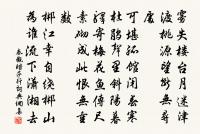 雾失楼台月迷津
渡桃源望断无寻
处
可堪孤馆闭春寒
杜鹃声里斜阳暮
驿寄梅花鱼传尺
素砌成此恨无重
数
郴江幸自绕郴山
为谁流下潇湘去
秦观踏莎行词